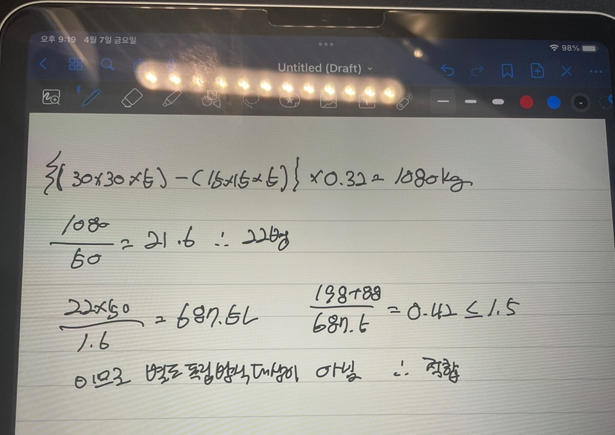 오후 9:19 4월 7일 금요일
98%
Untitled (Draft)
{(30×30×5)-(15×15×5)}×0.32=1080kg
1080/50 = 21.6 ∴ 22병
22×50/1.6 = 687.5L 198+88/687.5 = 0.42 ≤ 1.5
이므로 별도 독립방식 대상이 아님 ∴ 적합